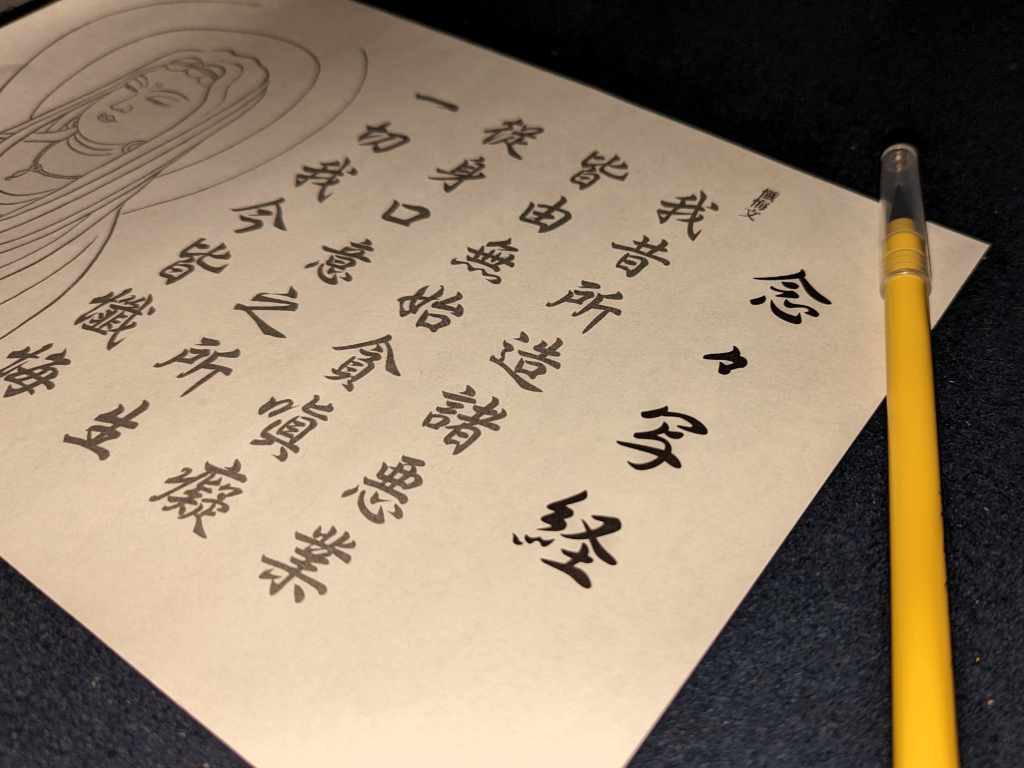 念々写経
懺悔文
我昔所造諸悪業
皆由無始貪嗔癡
從身口意之所生
一切我今皆懺悔